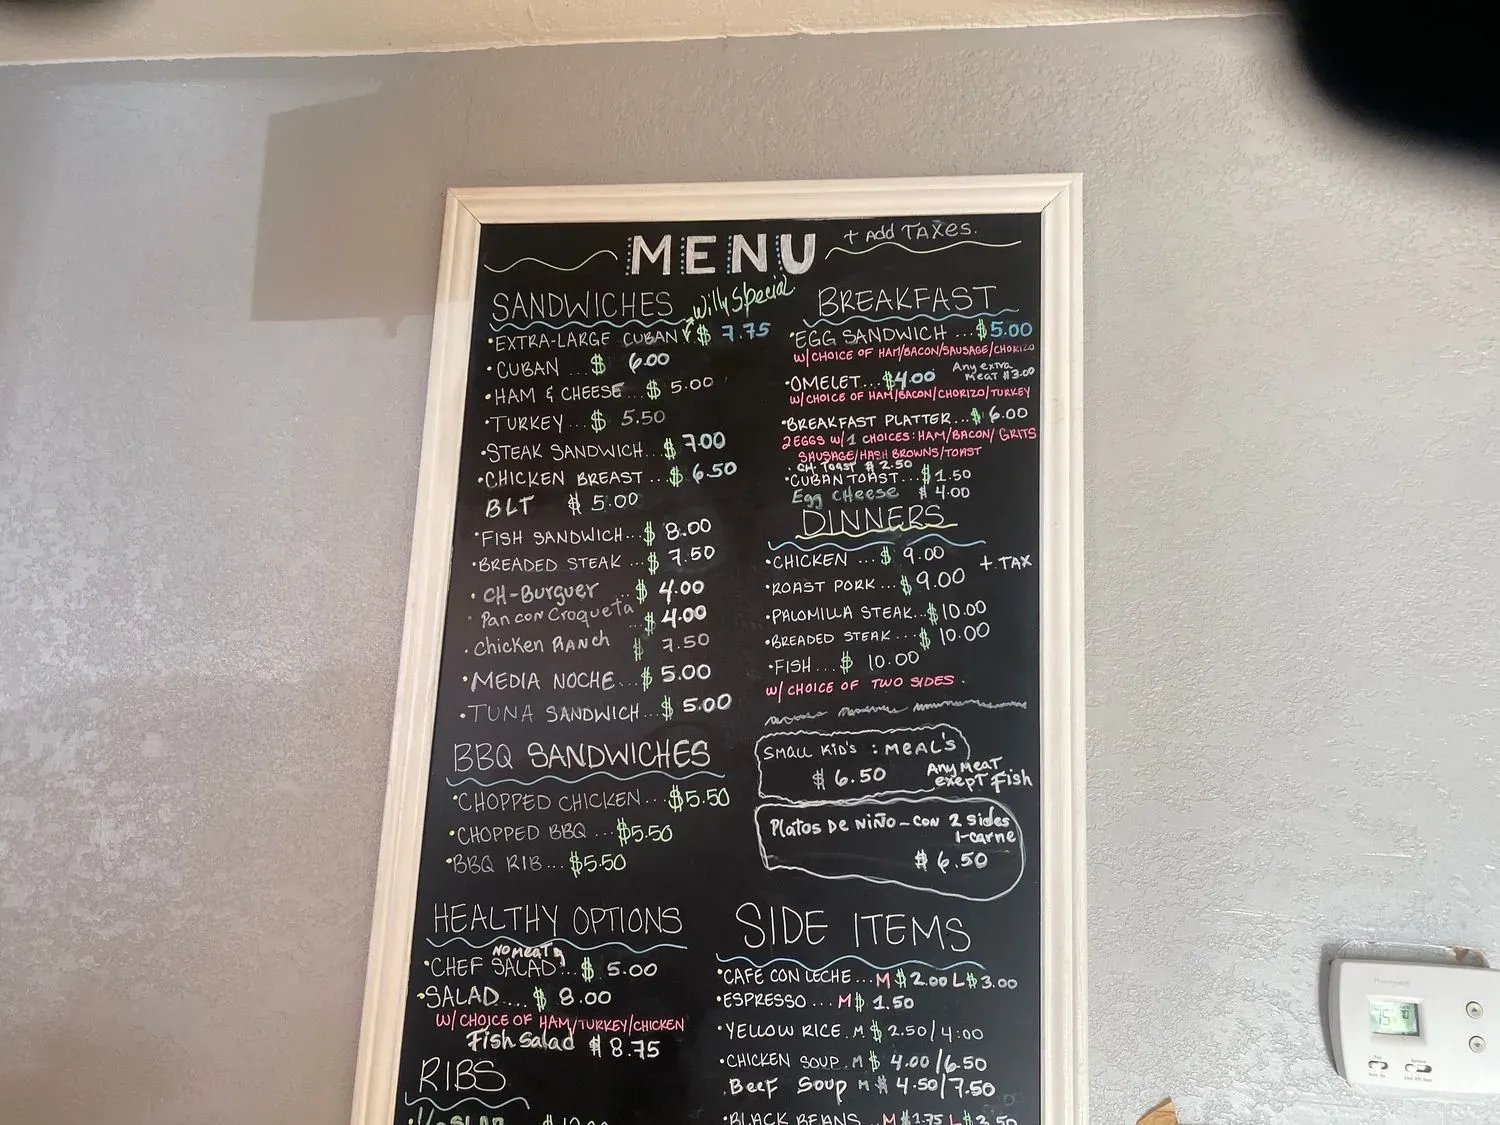 MENU + Add TAXES.
SANDWICHES Willy Special
•EXTRA-LARGE CUBAN $ 7.75
•CUBAN ... $ 6.00
•HAM & CHEESE ... $ 5.00
•TURKEY ... $ 5.50
•STEAK SANDWICH... $ 7.00
•CHICKEN BREAST ... $ 6.50
BLT $ 5.00
•FISH SANDWICH... $ 8.00
•BREADED STEAK ... $ 7.50
•CH-Burguer ... $ 4.00
•Pan con Croqueta ... $ 4.00
•Chicken RANCH $ 7.50
•MEDIA NOCHE... $ 5.00
•TUNA SANDWICH... $ 5.00
BBQ SANDWICHES
•CHOPPED CHICKEN... $5.50
•CHOPPED BBQ ... $5.50
•BBQ RIB... $5.50
HEALTHY OPTIONS
NO MEAT
•CHEF SALAD... $ 5.00
•SALAD.... $ 8.00
W/CHOICE OF HAM/TURKEY/CHICKEN
Fish Salad $ 8.75
RIBS
BREAKFAST
•EGG SANDWICH ... $5.00
W/CHOICE OF HAM/BACON/SAUSAGE/CHORIZO
•OMELET... $4.00 Any extra
MEAT $3.00
W/CHOICE OF HAM/BACON/CHORIZO/TURKEY
•BREAKFAST PLATTER... $ 6.00
2 EGGS W/1 CHOICES: HAM/BACON/ GRITS
SAUSAGE/HASH BROWNS/TOAST
•CH. Toast $ 2.50
•CUBAN TOAST... $ 1.50
Egg CHeese $ 4.00
DINNERS
•CHICKEN ... $ 9.00 + TAX
•ROAST PORK ... $ 9.00
•PALOMILLA STEAK... $10.00
•BREADED STEAK ... $ 10.00
•FISH ... $ 10.00
W/ CHOICE OF TWO SIDES.
SMALL KID'S : MEAL'S
$ 6.50 ANY MEAT
exepT Fish
Platos De Niño-con 2 Sides
1-carne
$ 6.50
SIDE ITEMS
•CAFE CON LECHE ... M $ 2.00 L $ 3.00
•ESPRESSO ... M $ 1.50
•YELLOW RICE. M $ 2.50/4:00
•CHICKEN SOUP. M $ 4.00/6.50
.Beef Soup M $ 4.50/7.50
•BLACK BEANS... M $1.75 L $3.50
Honeywell
75°